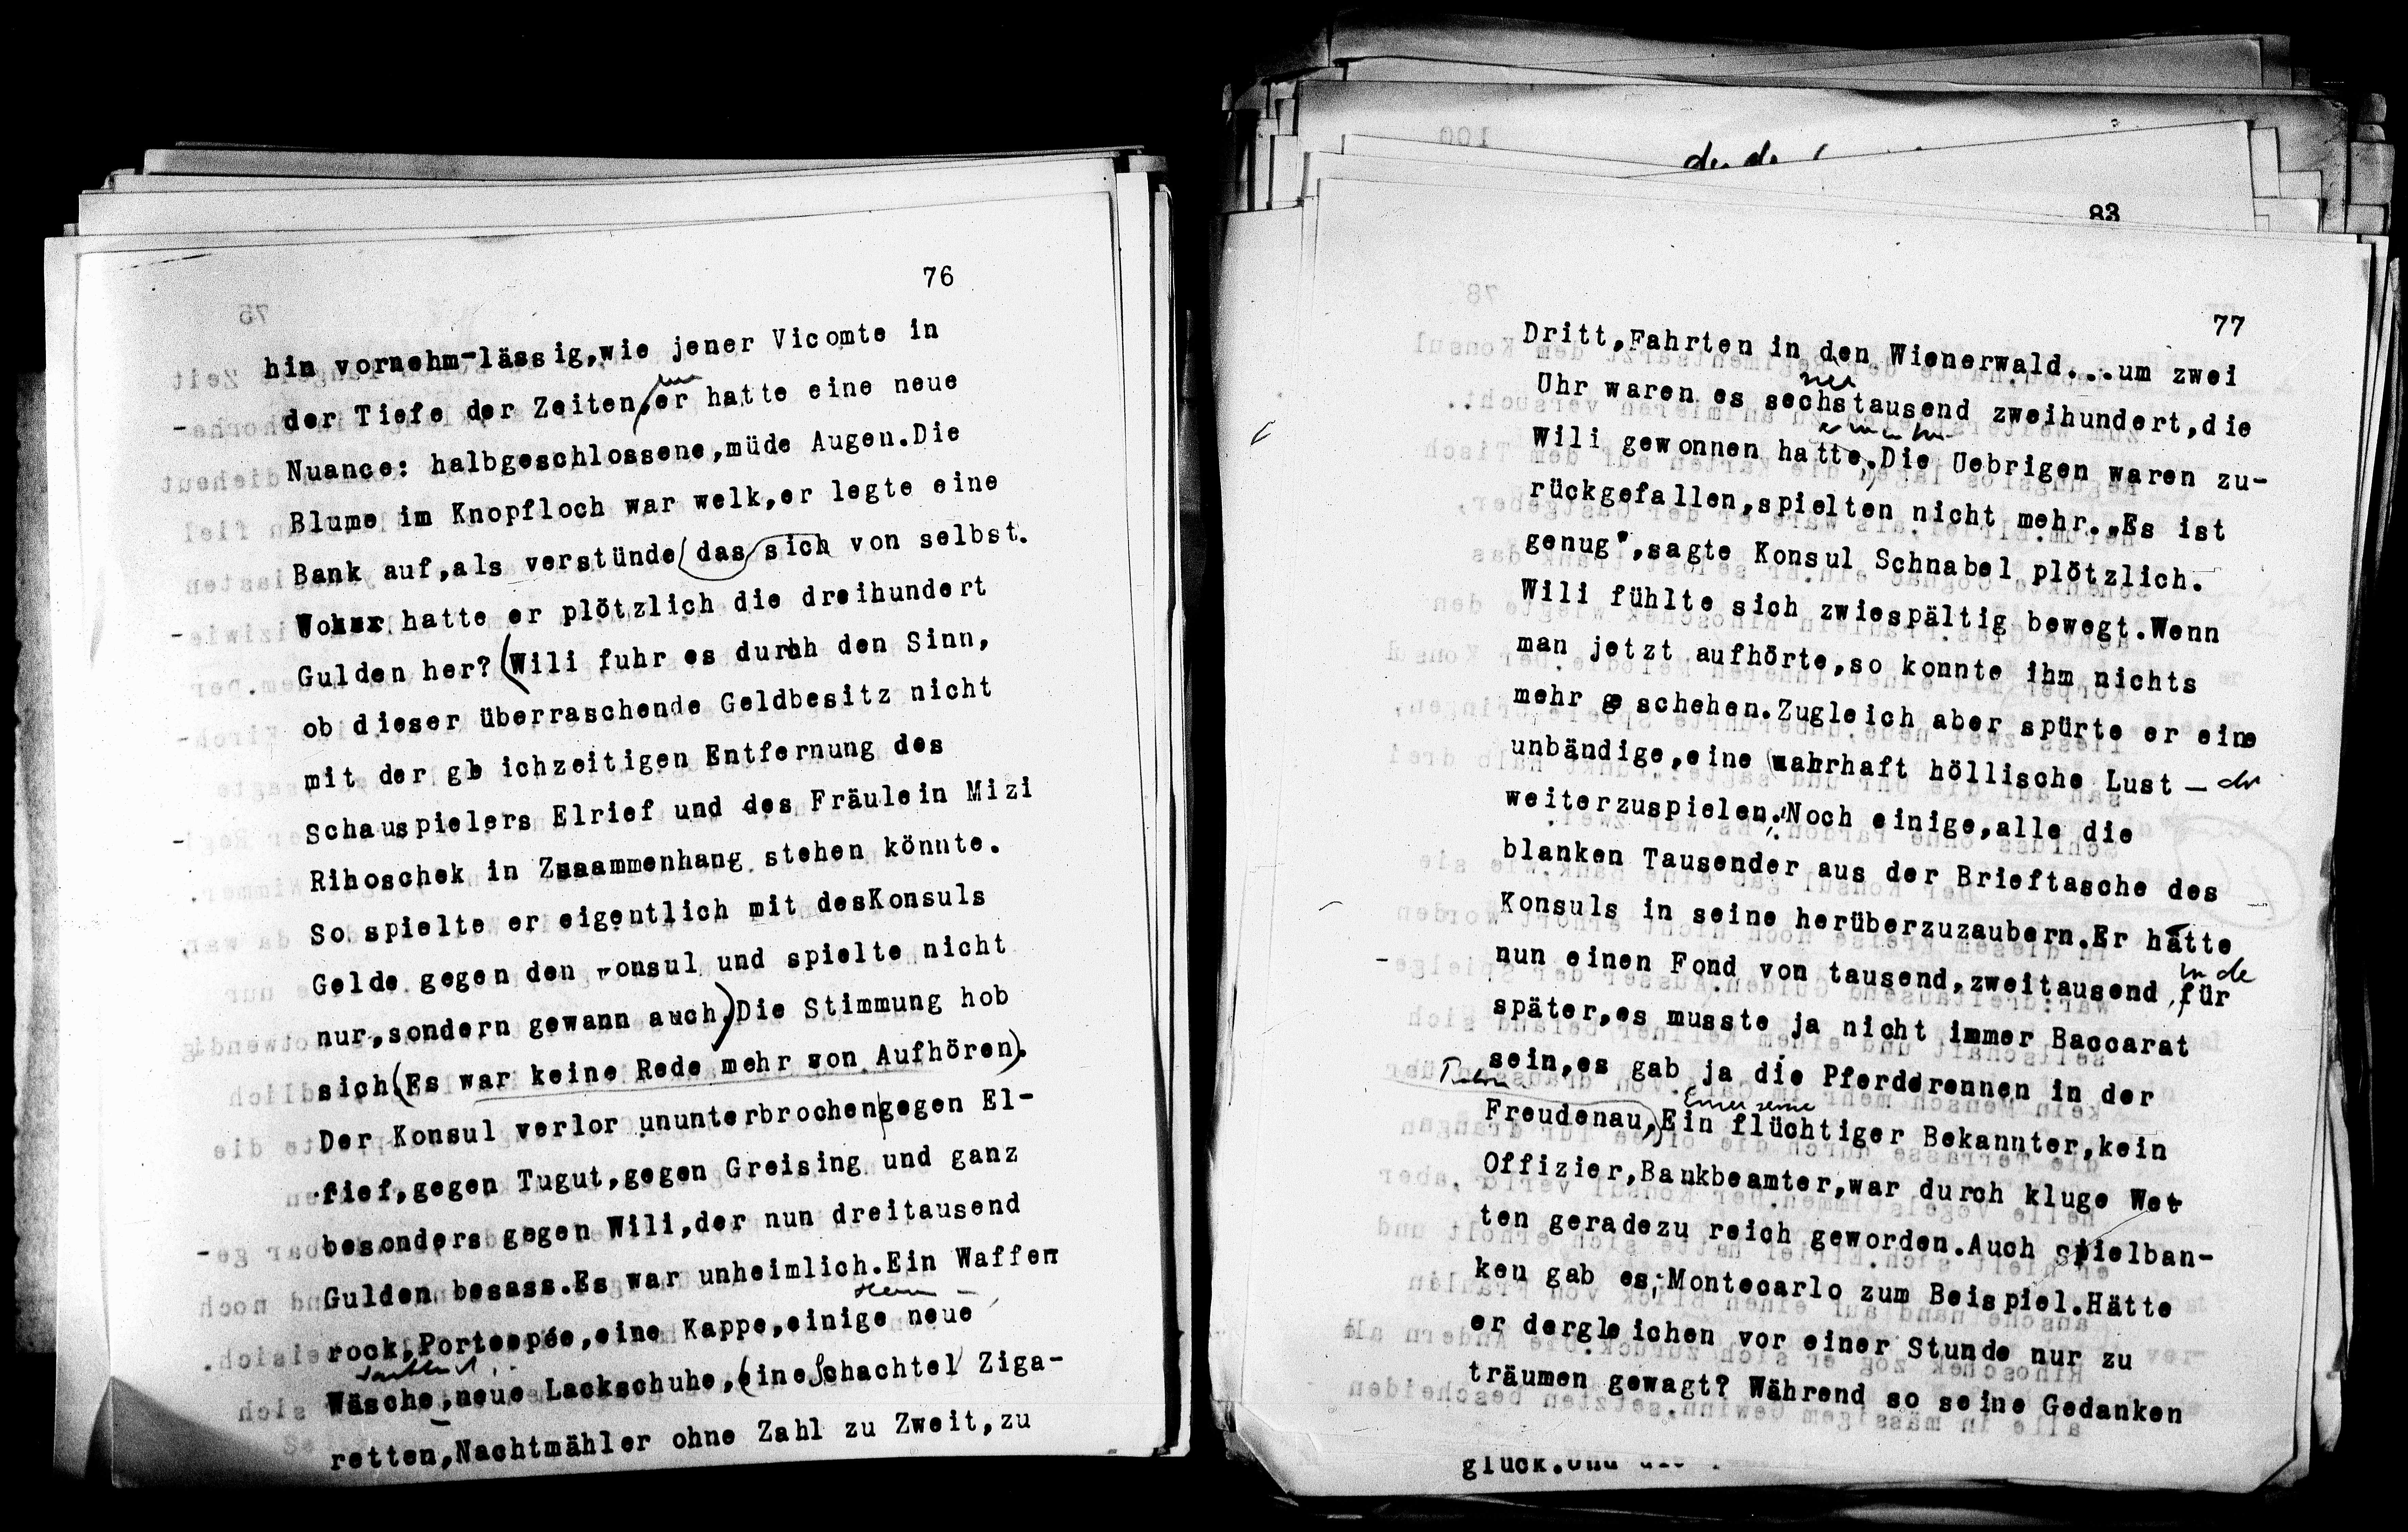 76
hin vornehm-lässig,wie jener Vicomte in
der Tiefe der Zeiten,er hatte eine neue
Nuance: halbgeschlossene,müde Augen.Die
Blume im Knopfloch war welk,er legte eine
Bank auf,als verstünde das sich von selbst.
Woher hatte er plötzlich die dreihundert
Gulden her? (Wili fuhr es durhh den Sinn,
ob dieser überraschende Geldbesitz nicht
mit der gleichzeitigen Entfernung des
Schauspielers Elrief und des Fräulein Mizi
Rihoschek in Zusammenhang stehen könnte.
So spielte er eigentlich mit desKonsuls
Gelde gegen den Konsul und spielte nicht
nur,sondern gewann auch.)Die Stimmung hob
sich(Es war keine Rede mehr von Aufhören).
Der Konsul verlor ununterbrochen gegen El-
rief,gegen Tugut,gegen Greising und ganz
besonders gegen Wili,der nun dreitausend
Gulden besass.Es war unheimlich.Ein Waffen
rock,Porteepée,eine Kappe,einige neue
Wäsche,neue Lackschuhe,(eine Schachtel) Ziga-
retten,Nachtmähler ohne Zahl zu Zweit,zu
100
83
77
Dritt,Fahrten in den Wienerwald...um zwei
Uhr waren es sechstausend zweihundert,die
Wili gewonnen hatte.Die Uebrigen waren zu-
rückgefallen,spielten nicht mehr.„Es ist
genug",sagte Konsul Schnabel plötzlich.
Wili fühlte sich zwiespältig bewegt.Wenn
man jetzt aufhörte,so konnte ihm nichts
mehr geschehen.Zugleich aber spürte er eine
unbändige,eine (wahrhaft höllische Lust –
weiterzuspielen.Noch einige,alle die
blanken Tausender aus der Brieftasche des
Konsuls in seine herüberzuzaubern.Er hätte
nun einen Fond von tausend,zweitausend für
später,es musste ja nicht immer Baccarat
sein,es gab ja die Pferderennen in der
Freudenau,)Ein flüchtiger Bekannter,kein
Offizier,Bankbeamter,war durch kluge Wet
ten geradezu reich geworden.Auch spielban-
ken gab es;Montecarlo zum Beispiel.Hätte
er dergleichen vor einer Stunde nur zu
träumen gewagt? Während so seine Gedanken
glück.Und